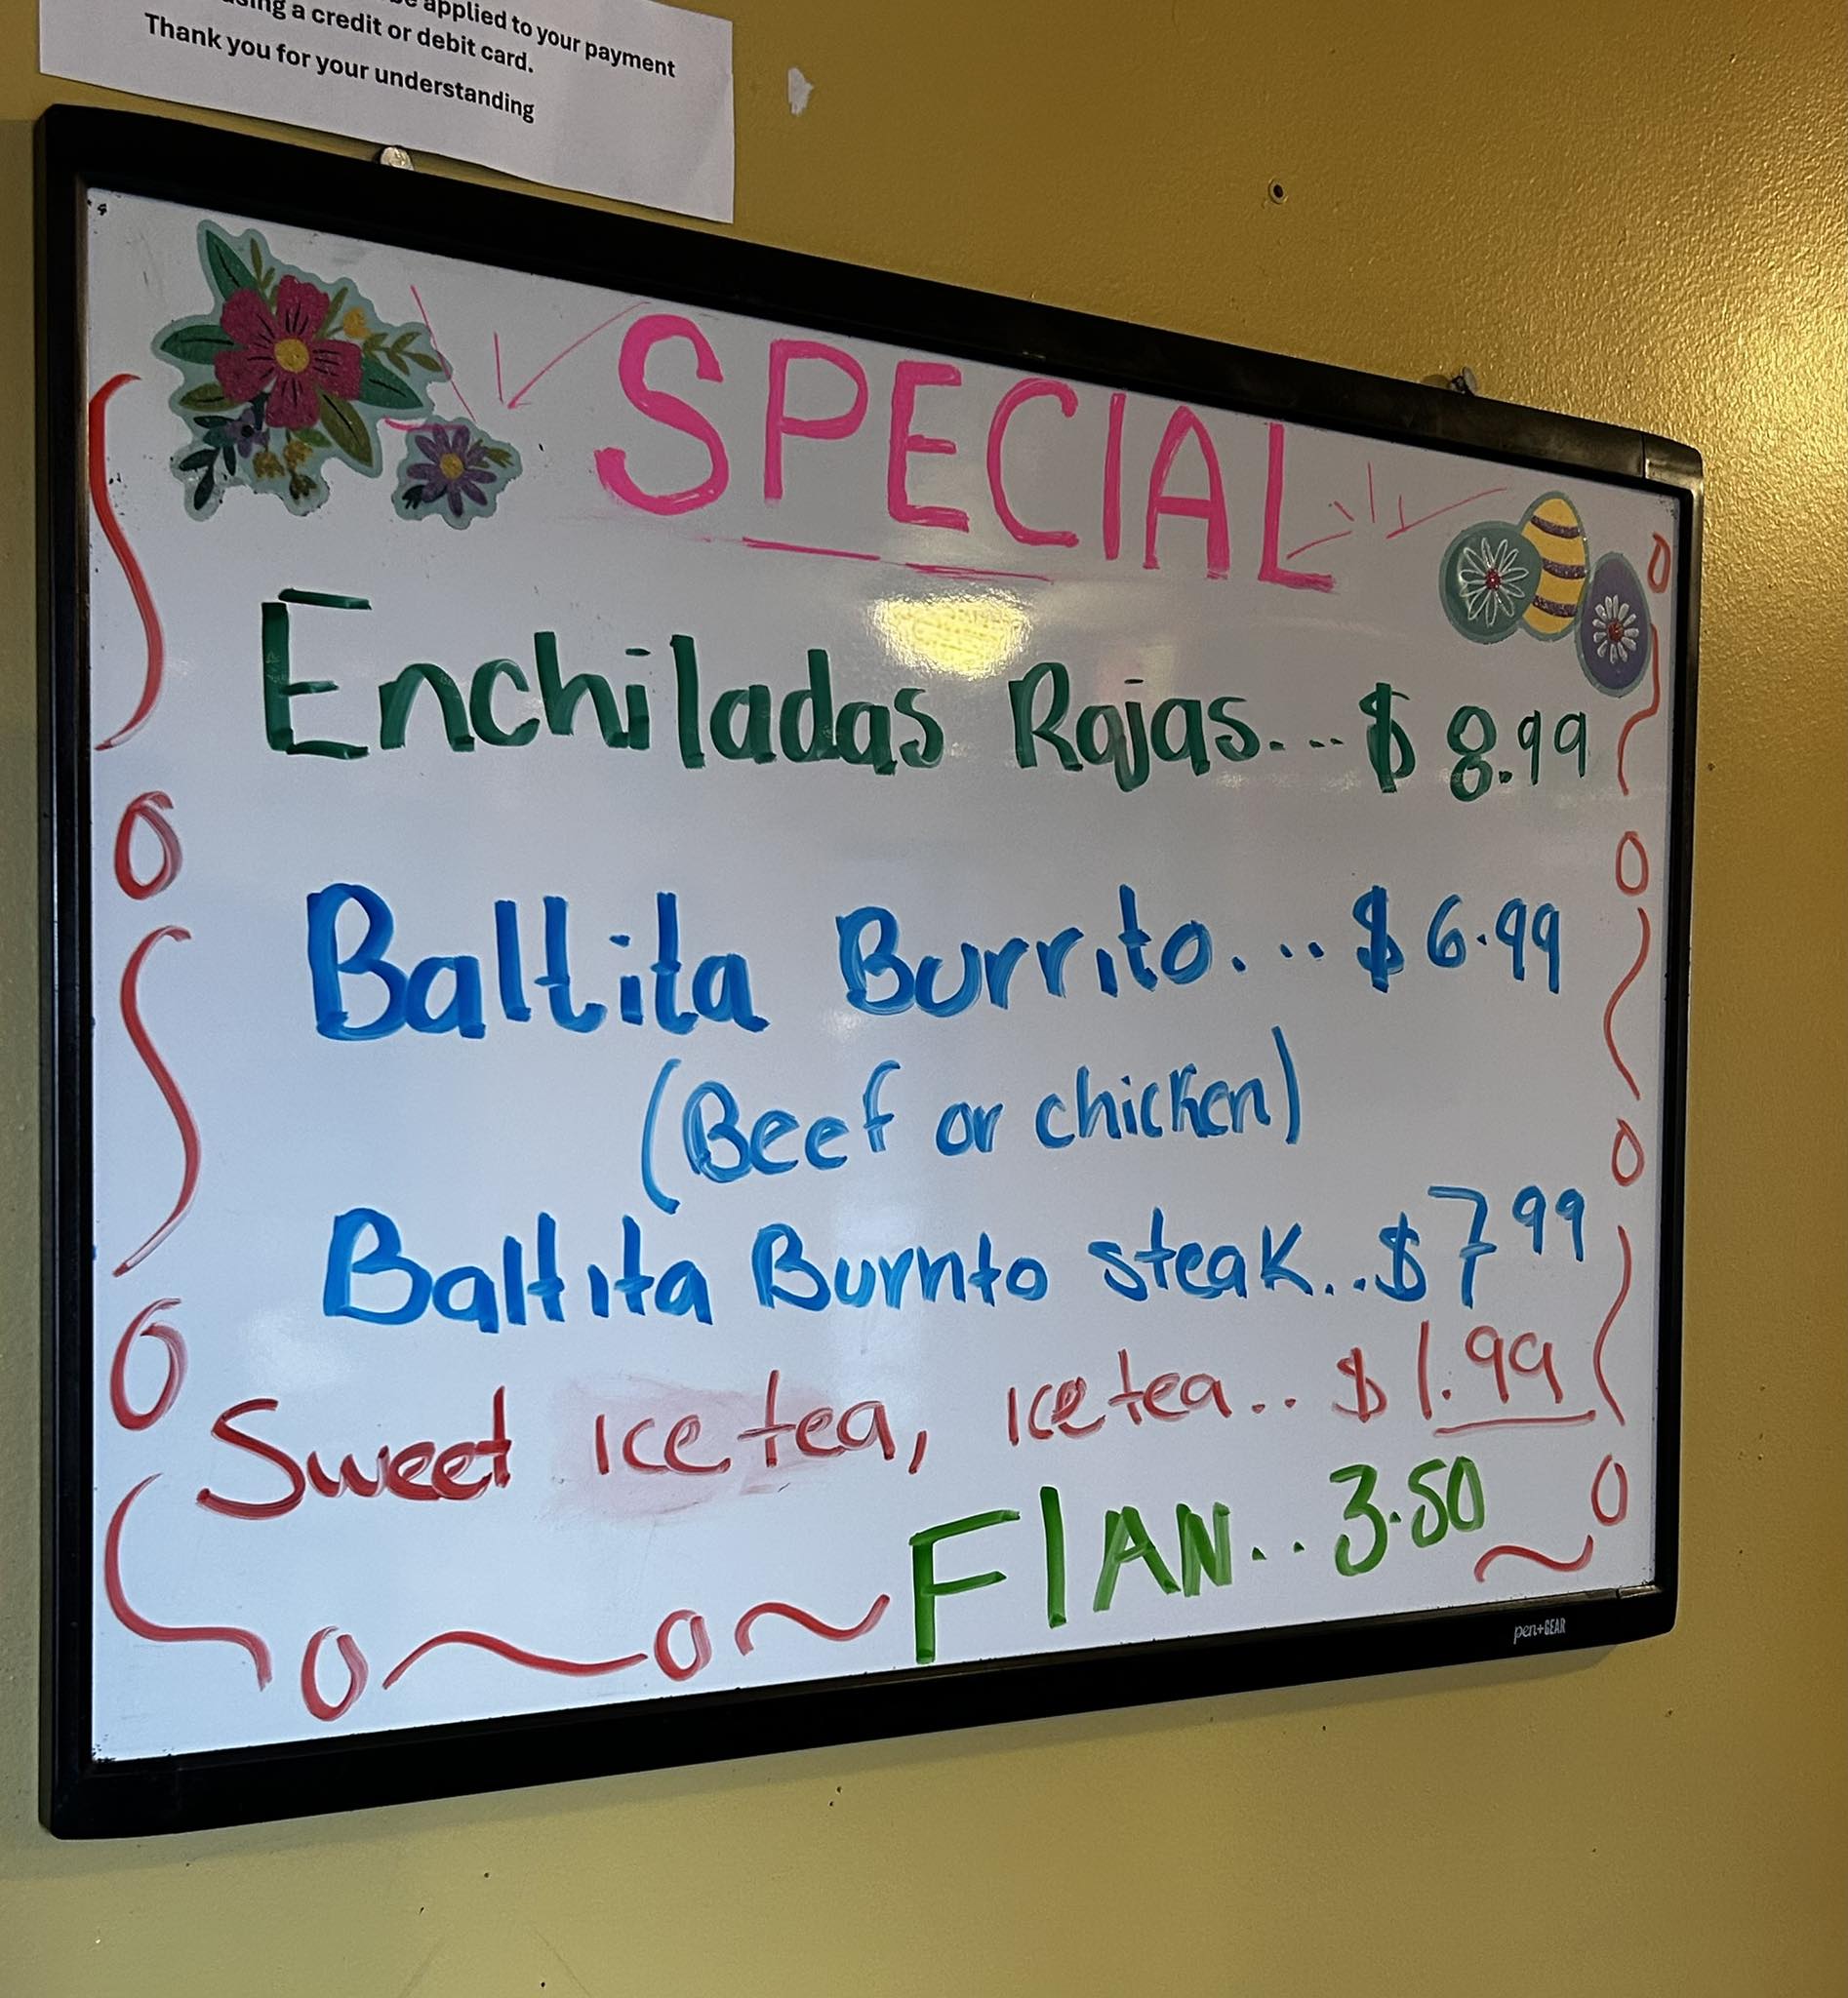 be applied to your payment
using a credit or debit card.
Thank you for your understanding
SPECIAL
Enchiladas Rojas...$ 8.99
Baltita Burrito...$ 6.99
(Beef or chicken)
Baltita Burrito steak..$ 7 99
Sweet ice tea, ice tea..$ 1.99
FlAN..3.50
pen+GEAR